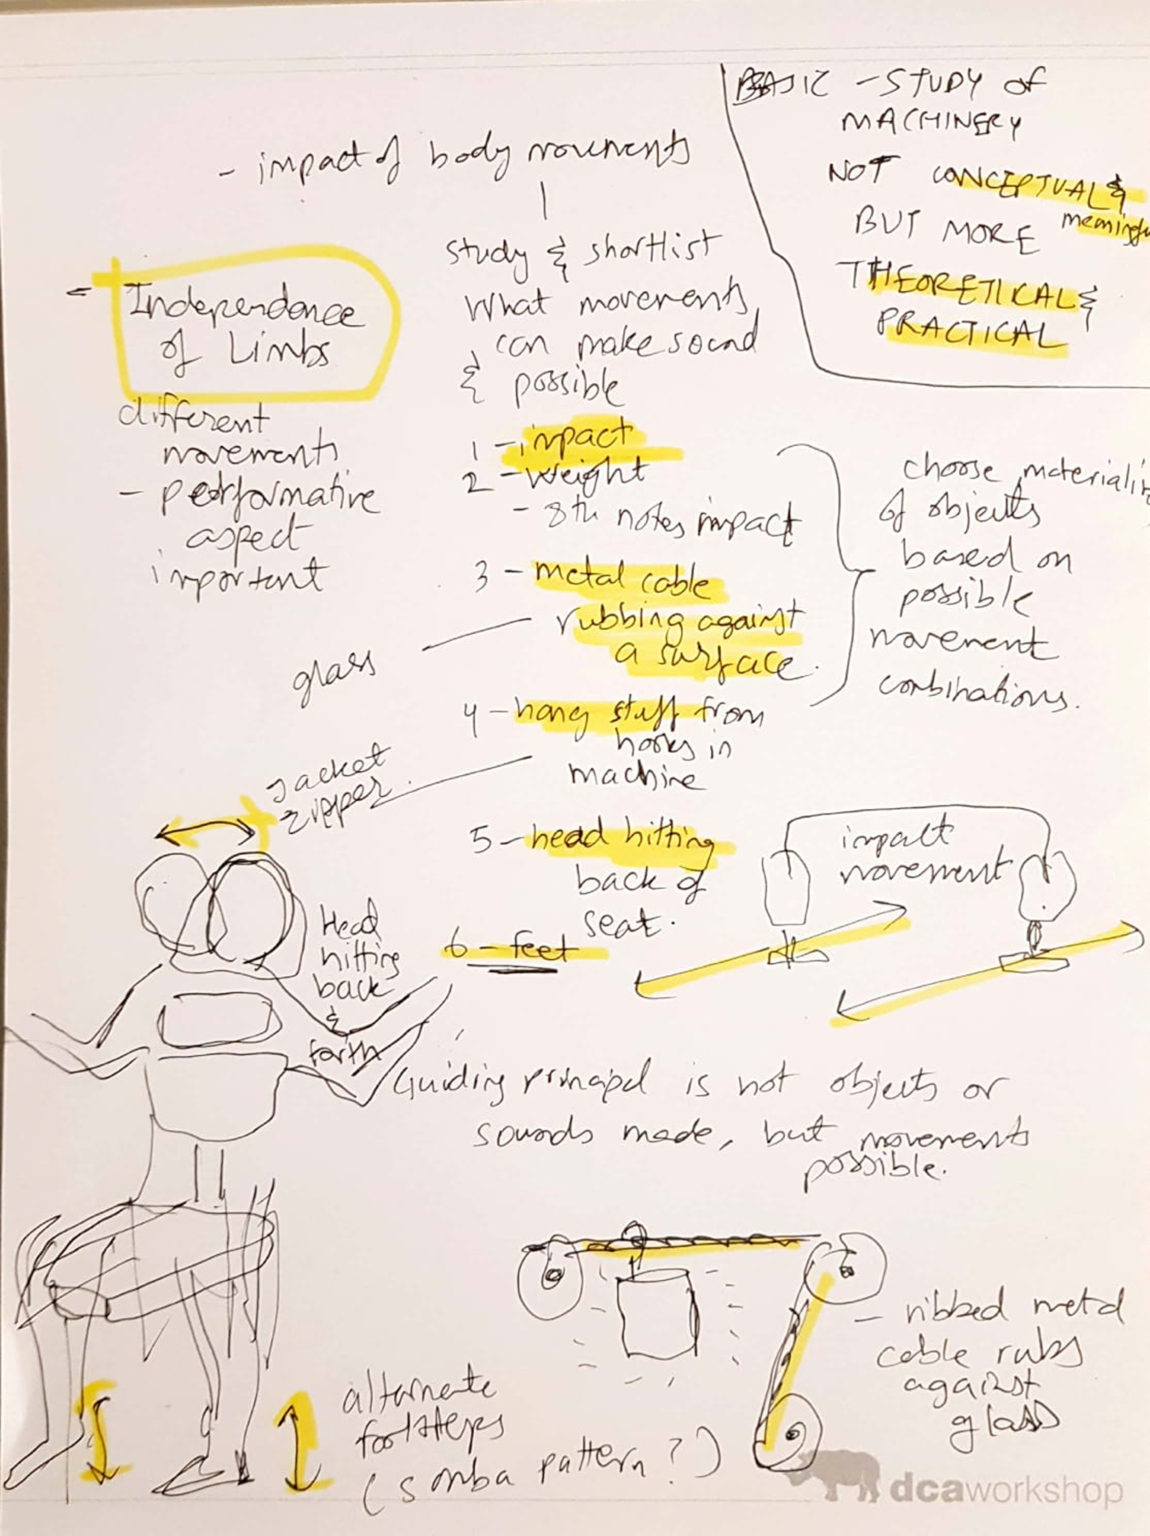 BASIC - STUDY OF
MACHINERY
NOT CONCEPTUAL &
meaningfu
BUT MORE
THEORETICAL &
PRACTICAL
- impact of body movements
study & shortlist
What movements
can make sound
& possible
1 - impact
2 - weight
- 8th notes impact
3 - metal cable
rubbing against
a surface.
4 - hang stuff from
hooks in
machine
5 - head hitting
back of
seat.
6 - feet
Independance
of Limbs
different
movements
- performative
aspect
important
glass
Jacket
zipper.
choose materiali
of objects
based on
possible
movement
combinations.
impact
movement
Head
hitting
back
&
forth
Guiding principel is not objects or
sounds made, but movements
possible.
- ribbed metal
cable rubs
against
glass
alternate
footsteps
(samba pattern?)
dcaworkshop